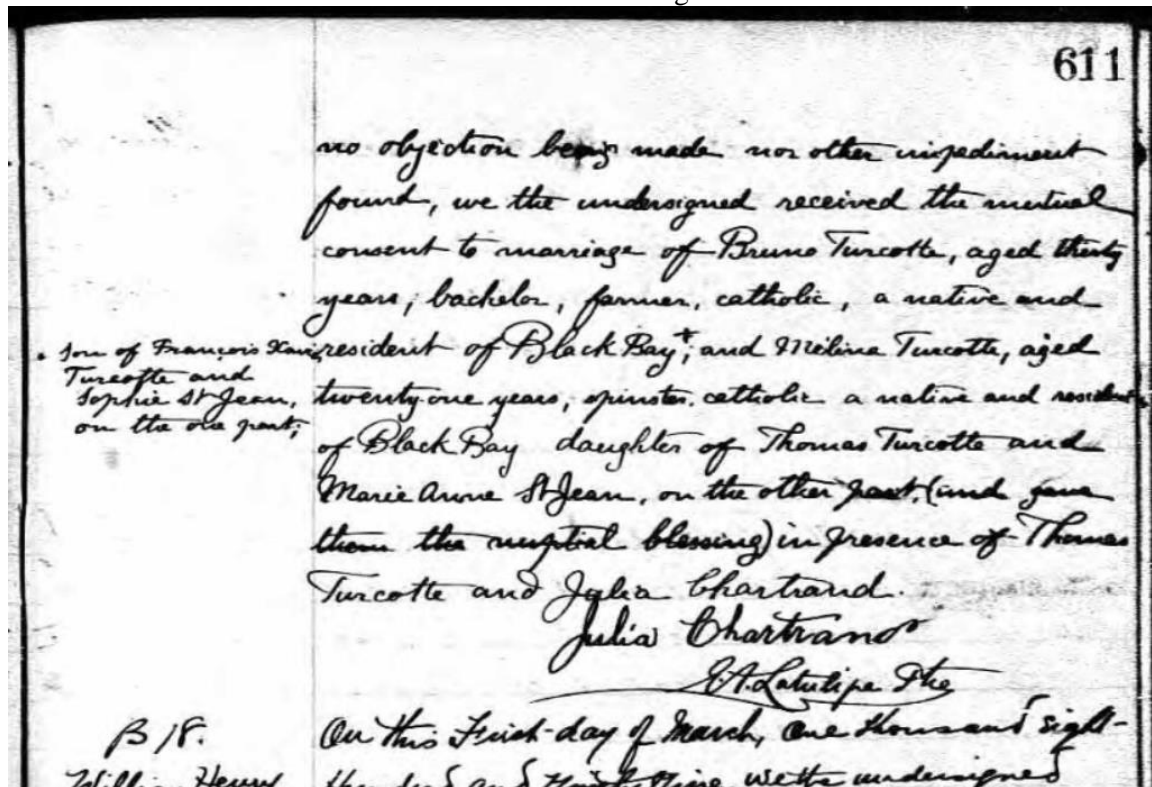 611
no objection being made nor other impediment
found, we the undersigned received the mutual
consent to marriage of Bruno Turcotte, aged thirty
years, bachelor, farmer, catholic, a native and
resident of Black Bay+; and Mélina Turcotte, aged
twenty-one years, spinster, catholic a native and resident
of Black Bay daughter of Thomas Turcotte and
Marie Anne St Jean, on the other part, (and gave
them the nuptial blessing) in presence of Thomas
Turcotte and Julia Chartrand.
Julia Chartrand
Latulipe Ptre
son of François Xavier
Turcotte and
Sophie St Jean,
on the one part;
B 18.
William Henry
On this First day of March, One thousand eight-
hundred and Ninety Nine, we the undersigned